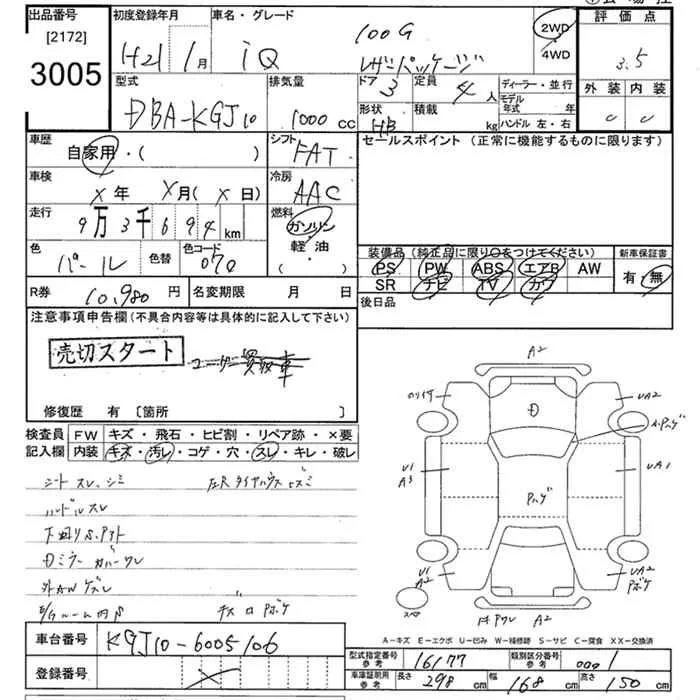 出品番号
[2172]
3005
初度登録年月
H21 1月
車名・グレード
iQ
100G
レザーパッケージ
2WD
4WD
評価点
3.5
外装 内装
C C
型式
DBA-KGJ10
排気量
1000 cc
ドア 3
定員 4 人
形状 HB
積載 kg
ディーラー・並行
モデル年式 年
ハンドル 左・右
車歴
自家用・( )
シフト
FAT
セールスポイント (正常に機能するものに限ります)
車検
X 年 X 月 ( X 日)
冷房
AAC
走行
9万3千694 km
燃料
ガソリン
軽油
( ・ )
色
パール
色替
色コード
070
装備品 (純正品に限り○をつけてください)
PS PW ABS エアB AW
SR ナビ TV カワ
新車保証書
有・無
R券
10,980 円
名変期限 月 日
後日品
注意事項申告欄 (不具合内容等は具体的に記入して下さい)
売切スタート
ユーザー買取車
修復歴 有 [箇所 ]
検査員記入欄
FW キズ・飛石・ヒビ割・リペア跡・×要
内装 キズ・汚レ・コゲ・穴・スレ・キレ・破レ
シート スレ、シミ
ハンドルスレ
下廻りS、アト
Dミラーカバーワレ
外AW キズ、レ
A2
UA2
D
U1
A3
UA1
U1
A2
UA2
スペ
A2
A-キズ E-エクボ U-凹み W-補修跡 S-サビ C-腐食 XX-交換済
車台番号
KGJ10-6005106
登録番号
型式指定番号
参考
16177
類別区分番号
参考
0001
車庫証明用
参考
長さ 298 cm
幅 168 cm
高さ 150 cm